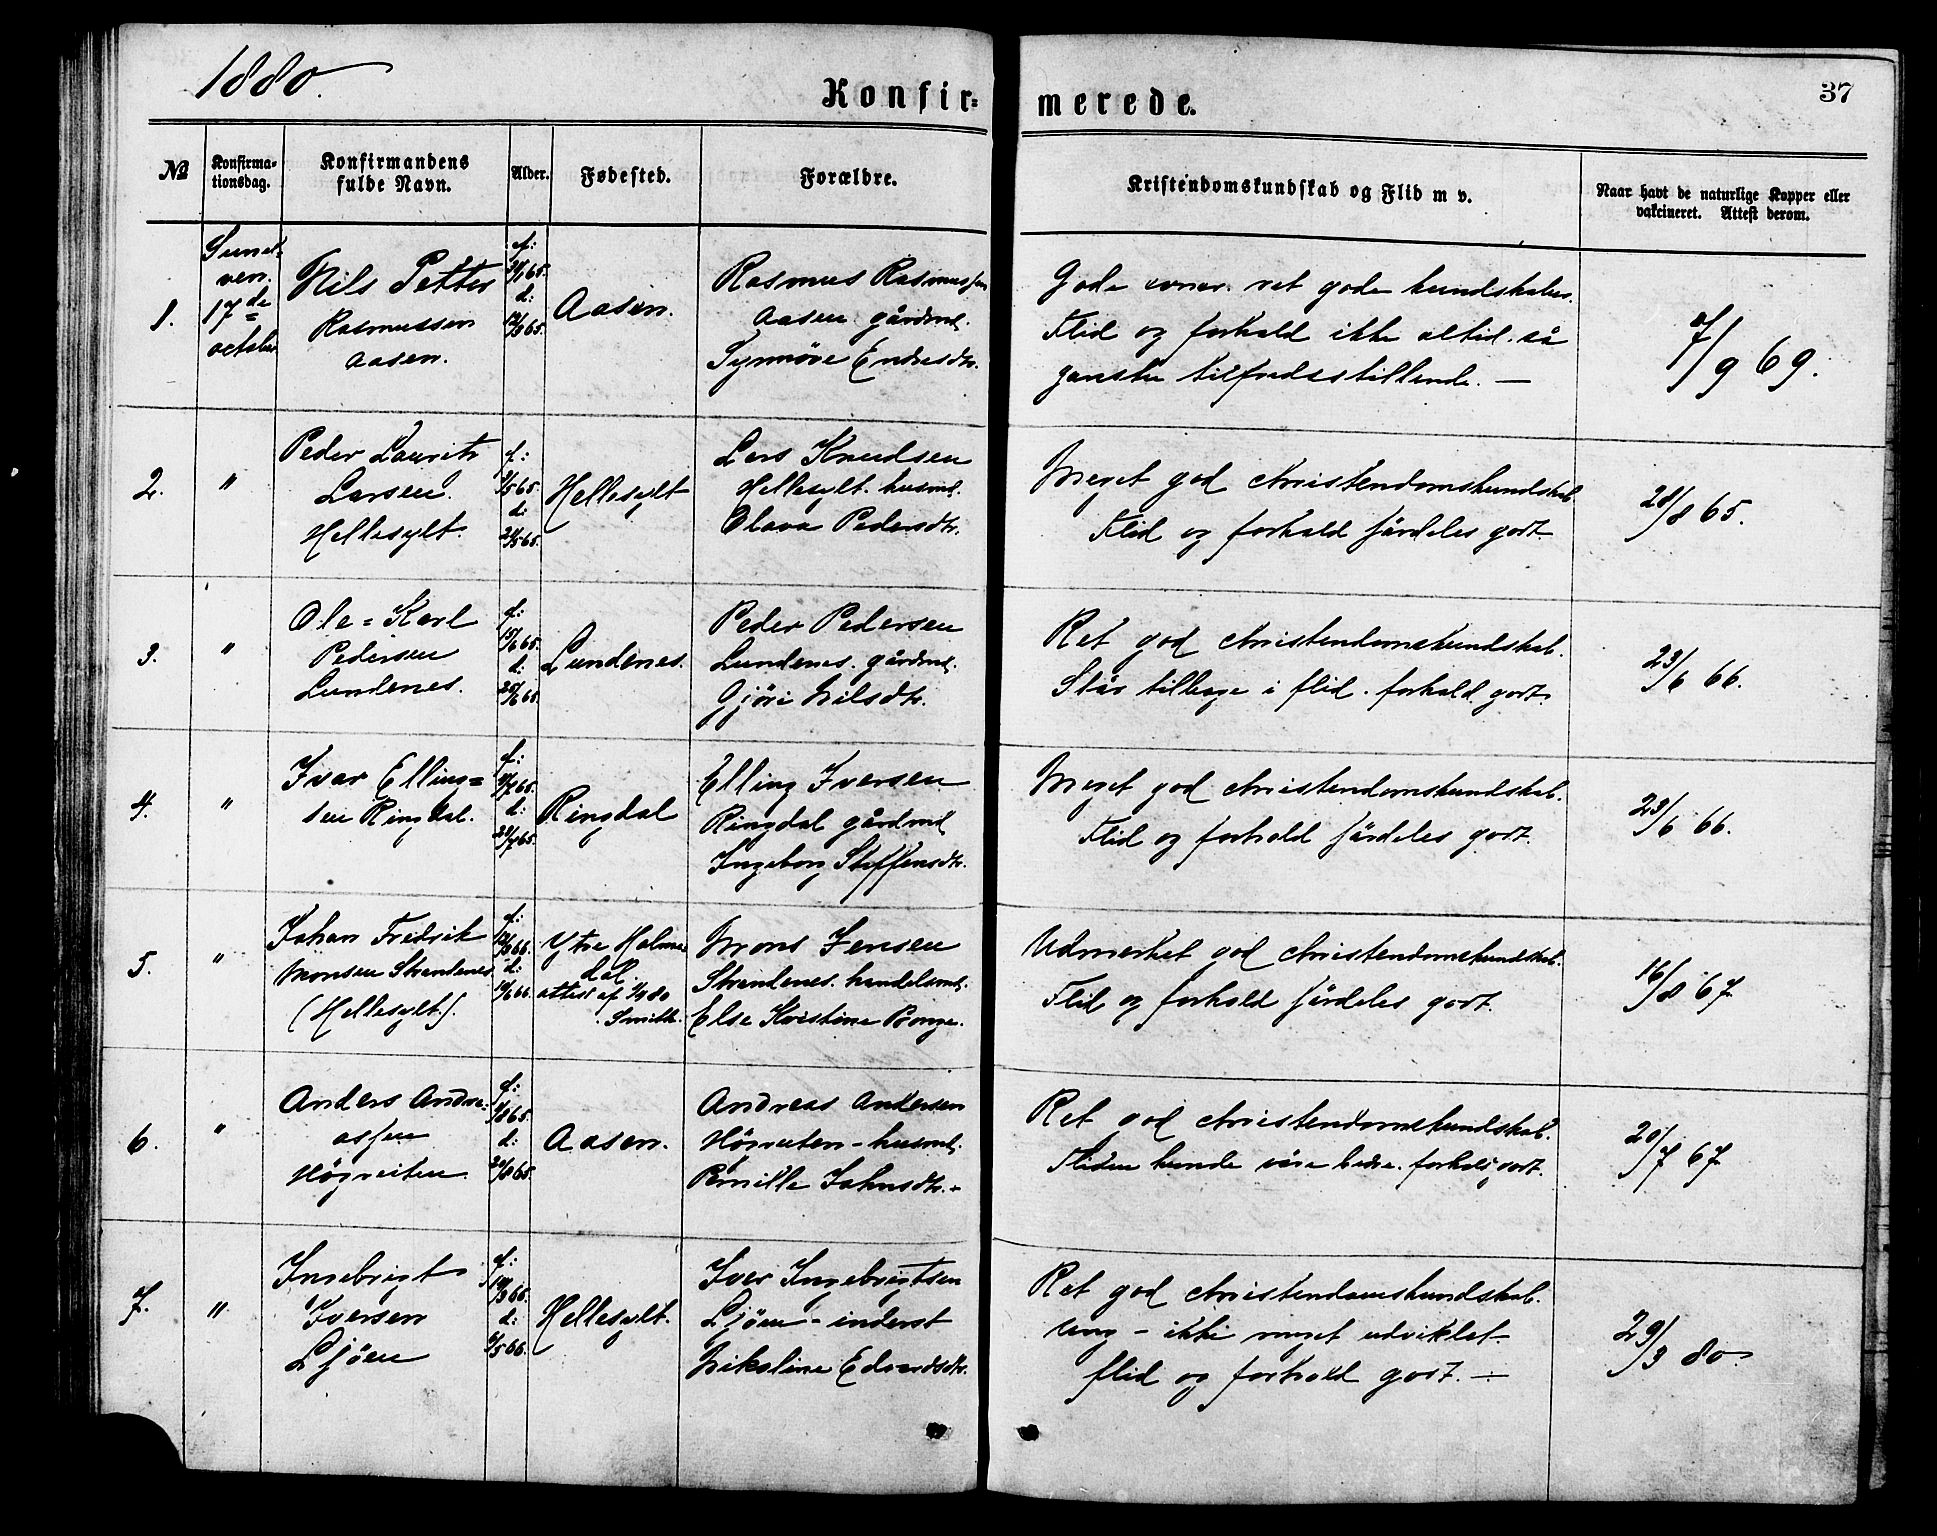 1880.
Konfir=
merede.
37
No
Konfirma-
tionsdag.
Konfirmandens
fulde Navn.
Alder.
Fødested.
Forældre.
Kristendomskundskab og Flid m v.
Naar havt de naturlige Kopper eller
vakcineret. Attest derom.
1.
Sunel-
ven.
17de
october
Nils Petter
Rasmussen
Aasen.
f:
d:
Aasen.
Rasmus Rasmussen
Aasen gårdmd.
Synnöve Endresdtr.
Gode evner. ret gode kundskaber.
Flid og forhold ikke altid så
ganske tilfredsstillende. —
7/9 69.
2.
"
Peder Laurits
Larsen.
Hellesylt.
f:
5/5 65.
d:
21/5 65.
Hellesylt
Lars Knudsen
Hellesylt. husmd.
Olava Pedersdtr.
Meget god christendomskundskab
Flid og forhold særdeles godt
28/8 65.
3.
"
Ole=Karl
Pedersen
Lundenes.
f:
15/6 65.
d:
25/6 65.
Lundenes.
Peder Pedersen
Lundenes. gårdmd.
Gjöri Nilsdtr.
Ret god christendomskundskab.
Står tilbage i flid. forhold godt
23/6 66.
4.
"
Ivar Elling=
sen Ringdal.
f:
d:
23/7 65.
Ringdal
Elling Iversen
Ringdal gårdmd
Ingeborg Steffensdtr.
Meget god christendomskundskab.
Flid og forhold særdeles godt.
23/6 66.
5.
"
Johan Fredrik
Monsen Strandenes
(Hellesylt).
f:
d:
Ytre Holme
dal.
attest af 1/9 80
Smith.
Mons Jensen
Strandenes. handelsmd.
Else Kristine Bonge.
Udmerket god christendomskundskab.
Flid og forhold særdeles godt.
16/8 67
6.
"
Anders Andre-
assen
Högreiten
f:
d:
20/8 65.
Aasen.
Andreas Andersen
Högreiten - husmd.
Pernille Johnsdtr.
Ret god christendomskundskab.
Fliden kunde være bedre. forhold godt.
20/7 67
7.
"
Ingebrigt
Iversen
Ljöen
f:
d:
Hellesylt.
Iver Ingebrigtsen
Ljöen - inderst
Nikoline Edvardsdtr.
Ret god christendomskundskab.
Ung - ikke meget udviklet.
flid og forhold godt. —
29/3 80